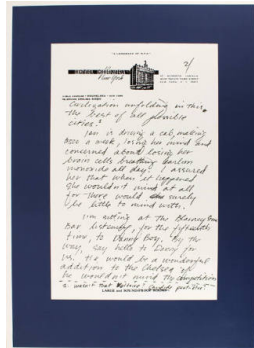 2/
New York
Civilization unfolding in this,
the best of all possible
cities."
Jan is driving a cab, making
over a week, losing her mind and
concerned about losing her
brain cells breathing carbon
monoxide all day. I assured
her that when it happened
she wouldn't mind at all
for there would surely
be little to mind with.
I'm sitting at the Blarney Stone
Bar listening, for the fifteenth
time, to Danny Boy. By the
way, say hello to Danny for
us. He would be a wonderful
addition to the Chelsea if
he wouldn't mind the competition
LARGE and SOUNDPROOF ROOMS